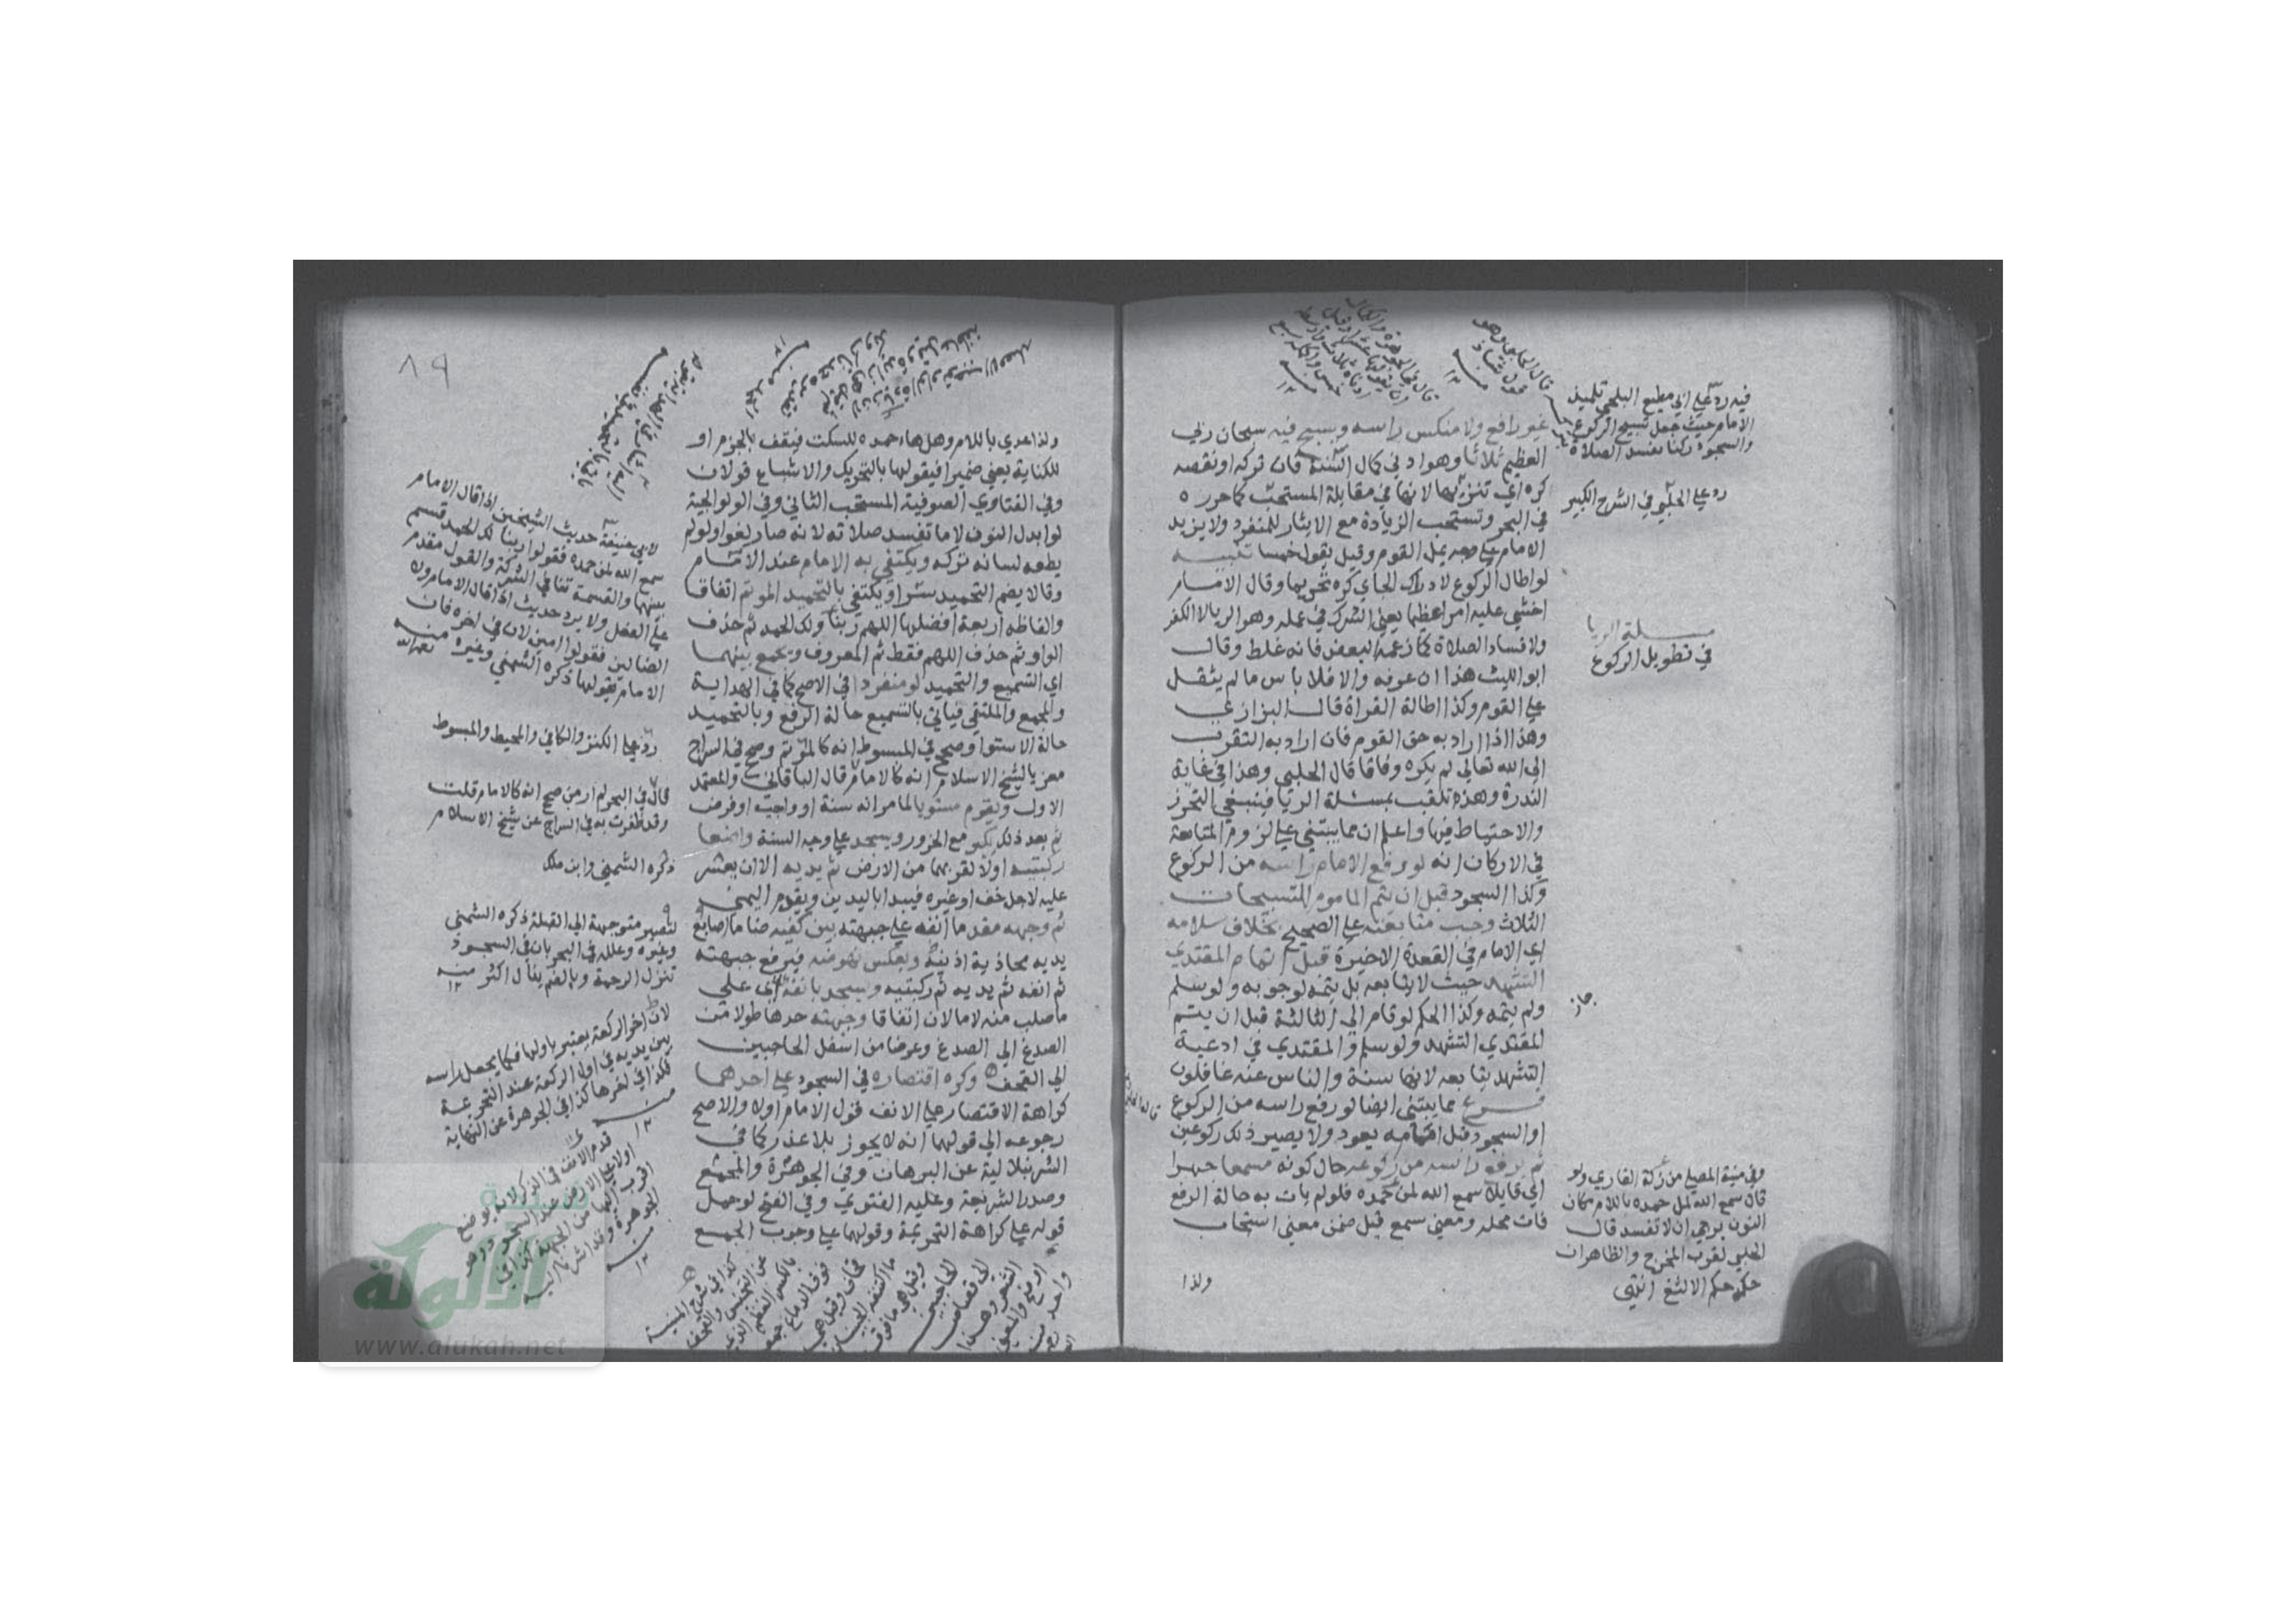 غير رافع ولا منكس راسه ويسبح فيه سبحان ربي
العظيم ثلاثا وهو ادني كمال السنة فان تركه او نقصه
كره اي تنزيها لانها في مقابلة المستحب كما حرره
في البحر وتستحب الزيادة مع الايثار للمنفرد ولا يزيد
الامام علي وجه يمل القوم وقيل يقول خمسا تنبيه
لو اطال الركوع لادراك الجاي كره تحريما وقال الامام
اخشي عليه امرا عظيما يعني الشرك في عمله وهو الريا لا الكفر
ولا فساد الصلاة كما زعمه البعض فانه غلط وقال
ابو الليث هذا ان عرفه والا فلا باس ما لم يثقل
علي القوم وكذا اطالة القراة قال البزازي
وهذا اذا اراد به حق القوم فان اراد به التقرب
الي الله تعالي لم يكره وفاقا قال الحلبي وهذا في غاية
الندرة وهذه تلقب بمسئلة الريا فينبغي التحرز
والاحتياط فيها واعلم ان مما يبتني علي لزوم المتابعة
في الاركان انه لو رفع الامام راسه من الركوع
وكذا السجود قبل ان يتم الماموم التسبيحات
الثلاث وجب متابعته علي الصحيح بخلاف سلامه
اي الامام في القعدة الاخيرة قبل اتمام المقتدي
التشهد حيث لا يتابعه بل يتمه لوجوبه ولو سلم
ولم يتمه وكذا الحكم لو قام الي الثالثة قبل ان يتم
المقتدي التشهد ولو سلم والمقتدي في ادعية
التشهد يتابعه لانها سنة والناس عنه غافلون
فرع مما يبتني ايضا لو رفع راسه من الركوع
او السجود قبل امامه يعود ولا يصير ذلك ركوعين
ثم يرفع راسه من ركوعه حال كونه مسمعا جهرا
اي قايلا سمع الله لمن حمده فلو لم يات به حالة الرفع
فات محله ومعني سمع قيل ضمن معني استجاب
ولذا
فيه رد علي ابي مطيع البلخي تلميذ
الامام حيث جعل تسبيح الركوع
والسجود ركنا تفسد الصلاة
رد علي الحلبي في الشرح الكبير
مسئلة الريا
في تطويل الركوع
جاز
وفي منية المصلي من زلة القاري ولو
قال سمع الله لمل حمده باللام مكان
النون يرجي ان لا تفسد قال
الحلبي لقرب المخرج والظاهر ان
حكمه حكم الالثغ انتهي
٨٩
ولذا عدي باللام وهل هاء حمده للسكت فيقف بالجزم او
للكناية يعني ضميرا فيقولها بالتحريك والاشباع قولان
وفي الفتاوي الصوفية المستحب الثاني وفي الولوالجية
لو ابدل النون لاما تفسد صلاته لانه صار لغوا ولو لم
يطعه لسانه تركه ويكتفي به الامام عند الامام
وقالا يضم التحميد سرا ويكتفي بالتحميد الموتم اتفاقا
والفاظه اربعة افضلها اللهم ربنا ولك الحمد ثم حذف
الواو ثم حذف اللهم فقط ثم المعروف ويجمع بينهما
اي التسميع والتحميد لو منفردا في الاصح كما في الهداية
والمجمع والملتقي فياتي بالتسميع حالة الرفع وبالتحميد
حالة الاستوا وصحح في المبسوط انه كالموتم وصحح في السراج
معزيا لشيخ الاسلام انه كالامام قال الباقاني والمعتمد
الاول ويقوم مستويا لما مر انه سنة او واجب او فرض
ثم بعد ذلك يكبر مع الخرور ويسجد علي وجه السنة واضعا
ركبتيه اولا لقربهما من الارض ثم يديه الا ان يعسر
عليه لاجل خف او غيره فيبدا باليدين ويقدم اليمني
ثم وجهه مقدما انفه علي جبهته بين كفيه ضاما اصابع
يديه محاذية اذنيه وبعكس نهوضه فيرفع جبهته
ثم انفه ثم يديه ثم ركبتيه وسجد بانفه اي علي
ما صلب منه لا ما لان اتفاقا وجبهته حدها طولا من
الصدغ الي الصدغ وعرضا من اسفل الحاجبين
الي القحف وكره اقتصاره في السجود علي احدهما
كراهة الاقتصار علي الانف قول الامام اولا والاصح
رجوعه الي قولهما انه لا يجوز بلا عذر كما في
الشرنبلالية عن البرهان وفي الجوهرة والمجمع
وصدر الشريعة وعليه الفتوي وفي الفتح لو حمل
قوله علي كراهة التحريمة وقولهما علي وجوب الجمع
لابي حنيفة حديث الشيخين اذا قال الامام
سمع الله لمن حمده فقولوا ربنا لك الحمد قسم
بينهما والقسمة تنافي الشركة والقول مقدم
علي الفعل ولا يرد حديث اذا قال الامام ولا
الضالين فقولوا امين لان في اخره فان
الامام يقولها ذكره الشمني وغيره
رد علي الكنز والكافي والمحيط والمبسوط
قال في البحر لم ار من صحح انه كالامام قلت
وقد ظفرت به في السراج عن شيخ الاسلام
ذكره الشمني وابن ملك
لتصير متوجهة الي القبلة ذكره الشمني
وغيره وعلله في البحر بان في السجود
تنزل الرحمة وبالضم ينال اكثر منه
لان اخر الركعة يعتبر باولها فكما يجعل راسه
بين يديه في اول الركعة عند التحريمة
فكذا في اخرها كذا في الجوهرة عن النهاية
شبكة
الألوكة
www.alukah.net